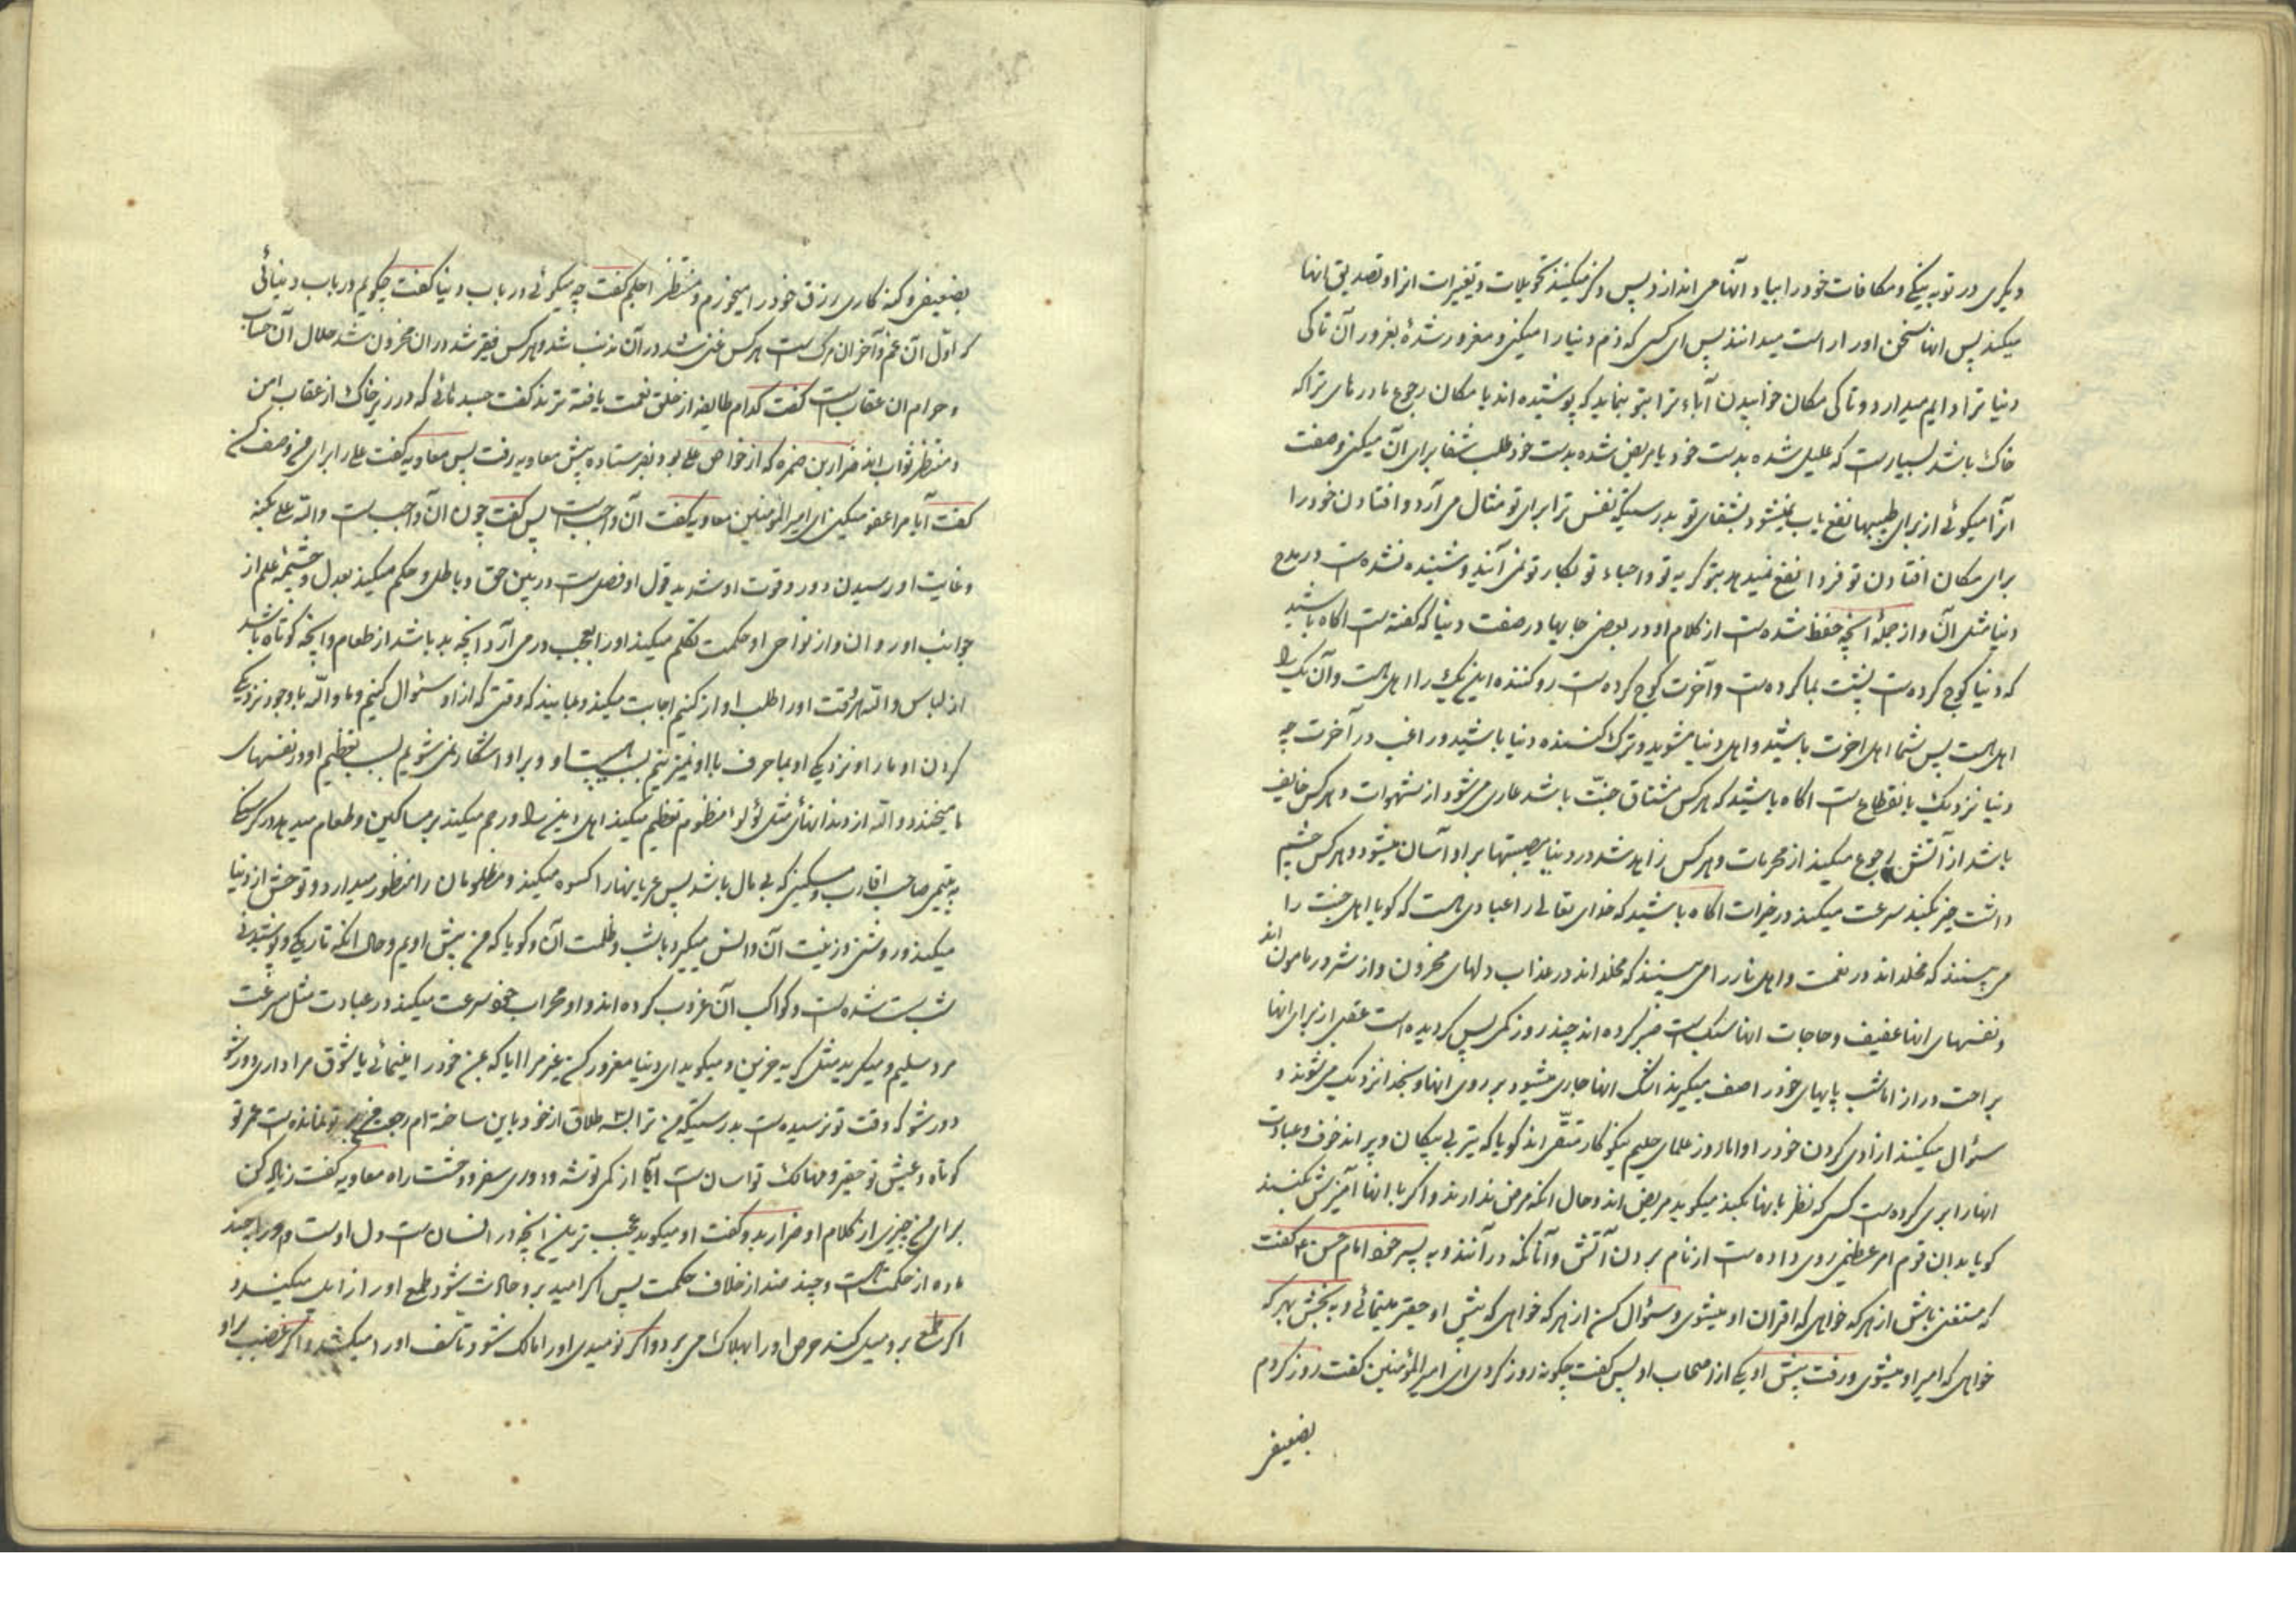 دیگری در توبه بینکی و مکافات خود را بیاد آنها می اندازد پس ذکر میکنند تحویلات و تغیرات انرا و تصدیق انها
میکند پس انها سخن اورا راست میدانند پس ای کسی که ذم دنیا را میکنی و مغرور شدهٔ بغرور آن تا کی
دنیا ترا دایم میدارد و تا کی مکان خوابیدن آباء ترا بتو بنماید که پوشیده اند یا مکان رجوع مادرهای ترا که
خاک باشد بسیارست که علیل شده بدست خود یا مریض شده بدست خود طلب شفا برای آن میکنی و صفت
انرا میگوئی از برای طبیبها نفع یاب نمیشود بشفای تو بدرستیکه نفس ترا برای تو مثال می آرد و افتادن خود را
برای مکان افتادن تو فردا نفع نمیدهد بتو گریه تو و احباء تو بکار تو نمی آیند و شنیده نشده ست در مدح
دنیا مثل آن و از جملهٔ آنچه حفظ شده ست از کلام او در بعضی جایها در صفت دنیا که گفته ست اکاه باشید
که دنیا کوچ کرده ست پشت بما کرده ست و آخرت کوچ کرده ست رو کننده این یک را اهل است و آن یک را
اهل است پس شما اهل اخرت باشید و اهل دنیا مشوید و ترک کننده دنیا باشید و راغب در آخرت چه
دنیا نزدیک بانقطاع ست اکاه باشید که هر کس مشتاق جنّت باشد عاری می شود از شهوات و هر کس خایف
باشد از آتش رجوع میکند از محرمات و هر کس زاهد شد در دنیا مصیبتها بر او آسان میشود و هر کس چشم
داشت خیر بکند سرعت میکند در خیرات اکاه باشید که خدای تعالی را عبادی هست که کویا اهل جنت را
می بینند که مخلد اند در نعمت و اهل نار را می بینند که مخلد اند در عذاب دلهای محزون و از شرور مامون اند
و نفسهای انها عفیف و حاجات انها سبک است صبر کرده اند چند روز کمی پس کردیده است عقبی از برای انها
براحت دراز اما شب پایهای خود را صف میکیرند اشک انها جاری میشود بر روی انها و بخدا نزدیک می شوند و
سؤال میکنند ازادی کردن خود را و اما روز علمای حلیم نیکو کار متّقی اند کویا که تیر بی پیکان و پر اند خوف و عبادت
انها را بری کرده ست کسی که نظر بانها بکند میکوید مریض اند و حال انکه مرض ندارند و اکر با انها آمیزش بکنید
کویا بدان قوم امر عظیمی روی داده ست از نام بردن آتش و آنانکه در آنند و به پسر خود امام حسن ع گفت
که مستغنی باش از هر که خواهی که اقران او میشوی و سؤال کن از هر که خواهی که پیش او حقیر مینمائی و به بخش بهر که
خواهی که امیر او میشوی و رفت پیش او یکی از اصحاب او پس گفت چکونه روز کردی ای امیر المؤمنین گفت روز کردم
بضعیفی
بضعیفی و کنه کاری رزق خود را میخورم و منتظر اجلم گفت چه میکوئی در باب دنیا گفت چکویم در باب دنیائی
که اوّل آن غم و آخر ان مرگ است هر کس غنی شد در آن مذنب باشد و هر کس فقیر شد در ان محزون شد حلال آن حساب
و حرام ان عقاب است گفت کدام طایفه از خلق نعمت یافته ترند گفت جسدهائی که در زیر خاک از عقاب امن
و منتظر ثواب اند ضرار بن ضمره که از خواص علی بود بفرستاده پیش معاویه رفت پس معاویه گفت علی را برای من وصف کن
گفت آیا مرا عفو میکنی ای امیر المؤمنین معاویه گفت آن واجب است پس گفت چون آن واجب ست والله علی بکنه
و غایت او رسیدن دور و قوت او شدید قول او فصل ست در بین حق و باطل و حکم میکند بعدل و چشمهٔ علم از
جوانب او روان و از نواحی او حکمت تکلم میکند او را بعجب در می آرد انچه بد باشد از طعام و انچه کوتاه باشد
از لباس والله هر وقت او را طلب او از کنیم اجابت میکند و بما بیند که وقتی که از او سؤال کنیم و ما والله باوجود نزدیکی
کردن او ما را و نزدیکی او بما حرف با او نمیزنیم بسبب هیبت او و بر او اشکار نمی شویم بسبب تعظیم او در نفسهای
ما میخندد والله از دندانهای مثل لؤلؤ منظوم تعظیم میکند اهل دین را و رحم میکند بر مساکین و طعام میدهد در کرسنکی
به یتیمی صاحب اقارب و مسکینی که بی مال باشد پس عریانها را کسوه میکند و مظلومان را منظور میدارد و توحش از دنیا
میکند و روشنی و زینت آن و انس میکیرد با شب و ظلمت آن و کویا که من پیش اویم و حال انکه تاریکی و پوشیدنی
شب ست شده ست و کواکب آن غروب کرده اند و او محراب خود سرعت میکند در عبادت مثل سرعت
مرد سلیم و میکرید مثل کریه حزین و میکوید ای دنیا مغرور کن غیر مرا ایا که بمن خود را مینمائی یا شوق مرا داری دور شو
دور شو که وقت تو نرسیده ست بدرستیکه من ترا بسه طلاق از خود باین ساخته ام رجعت من بر تو نمانده ست عمر تو
کوتاه و عیش تو حقیر و مهالک تو اسان ست آیا از کمی توشه و دوری سفر و وحشت راه معاویه گفت زیاده کن
برای من چیزی از کلام او ضرار بدو گفت او میکوید عجب ترین انچه در انسان ست دل اوست و مر او را چند
ماده از حکمت است و چند ضد از خلاف حکمت پس اکر امید برو حادث شود طمع او را زایل میکند و
اکر طمع برو میل کند حرص او را بهلاک می برد و اکر نومیدی او را مالک شود تاسّف او را میکشد و اکر غضب بر او